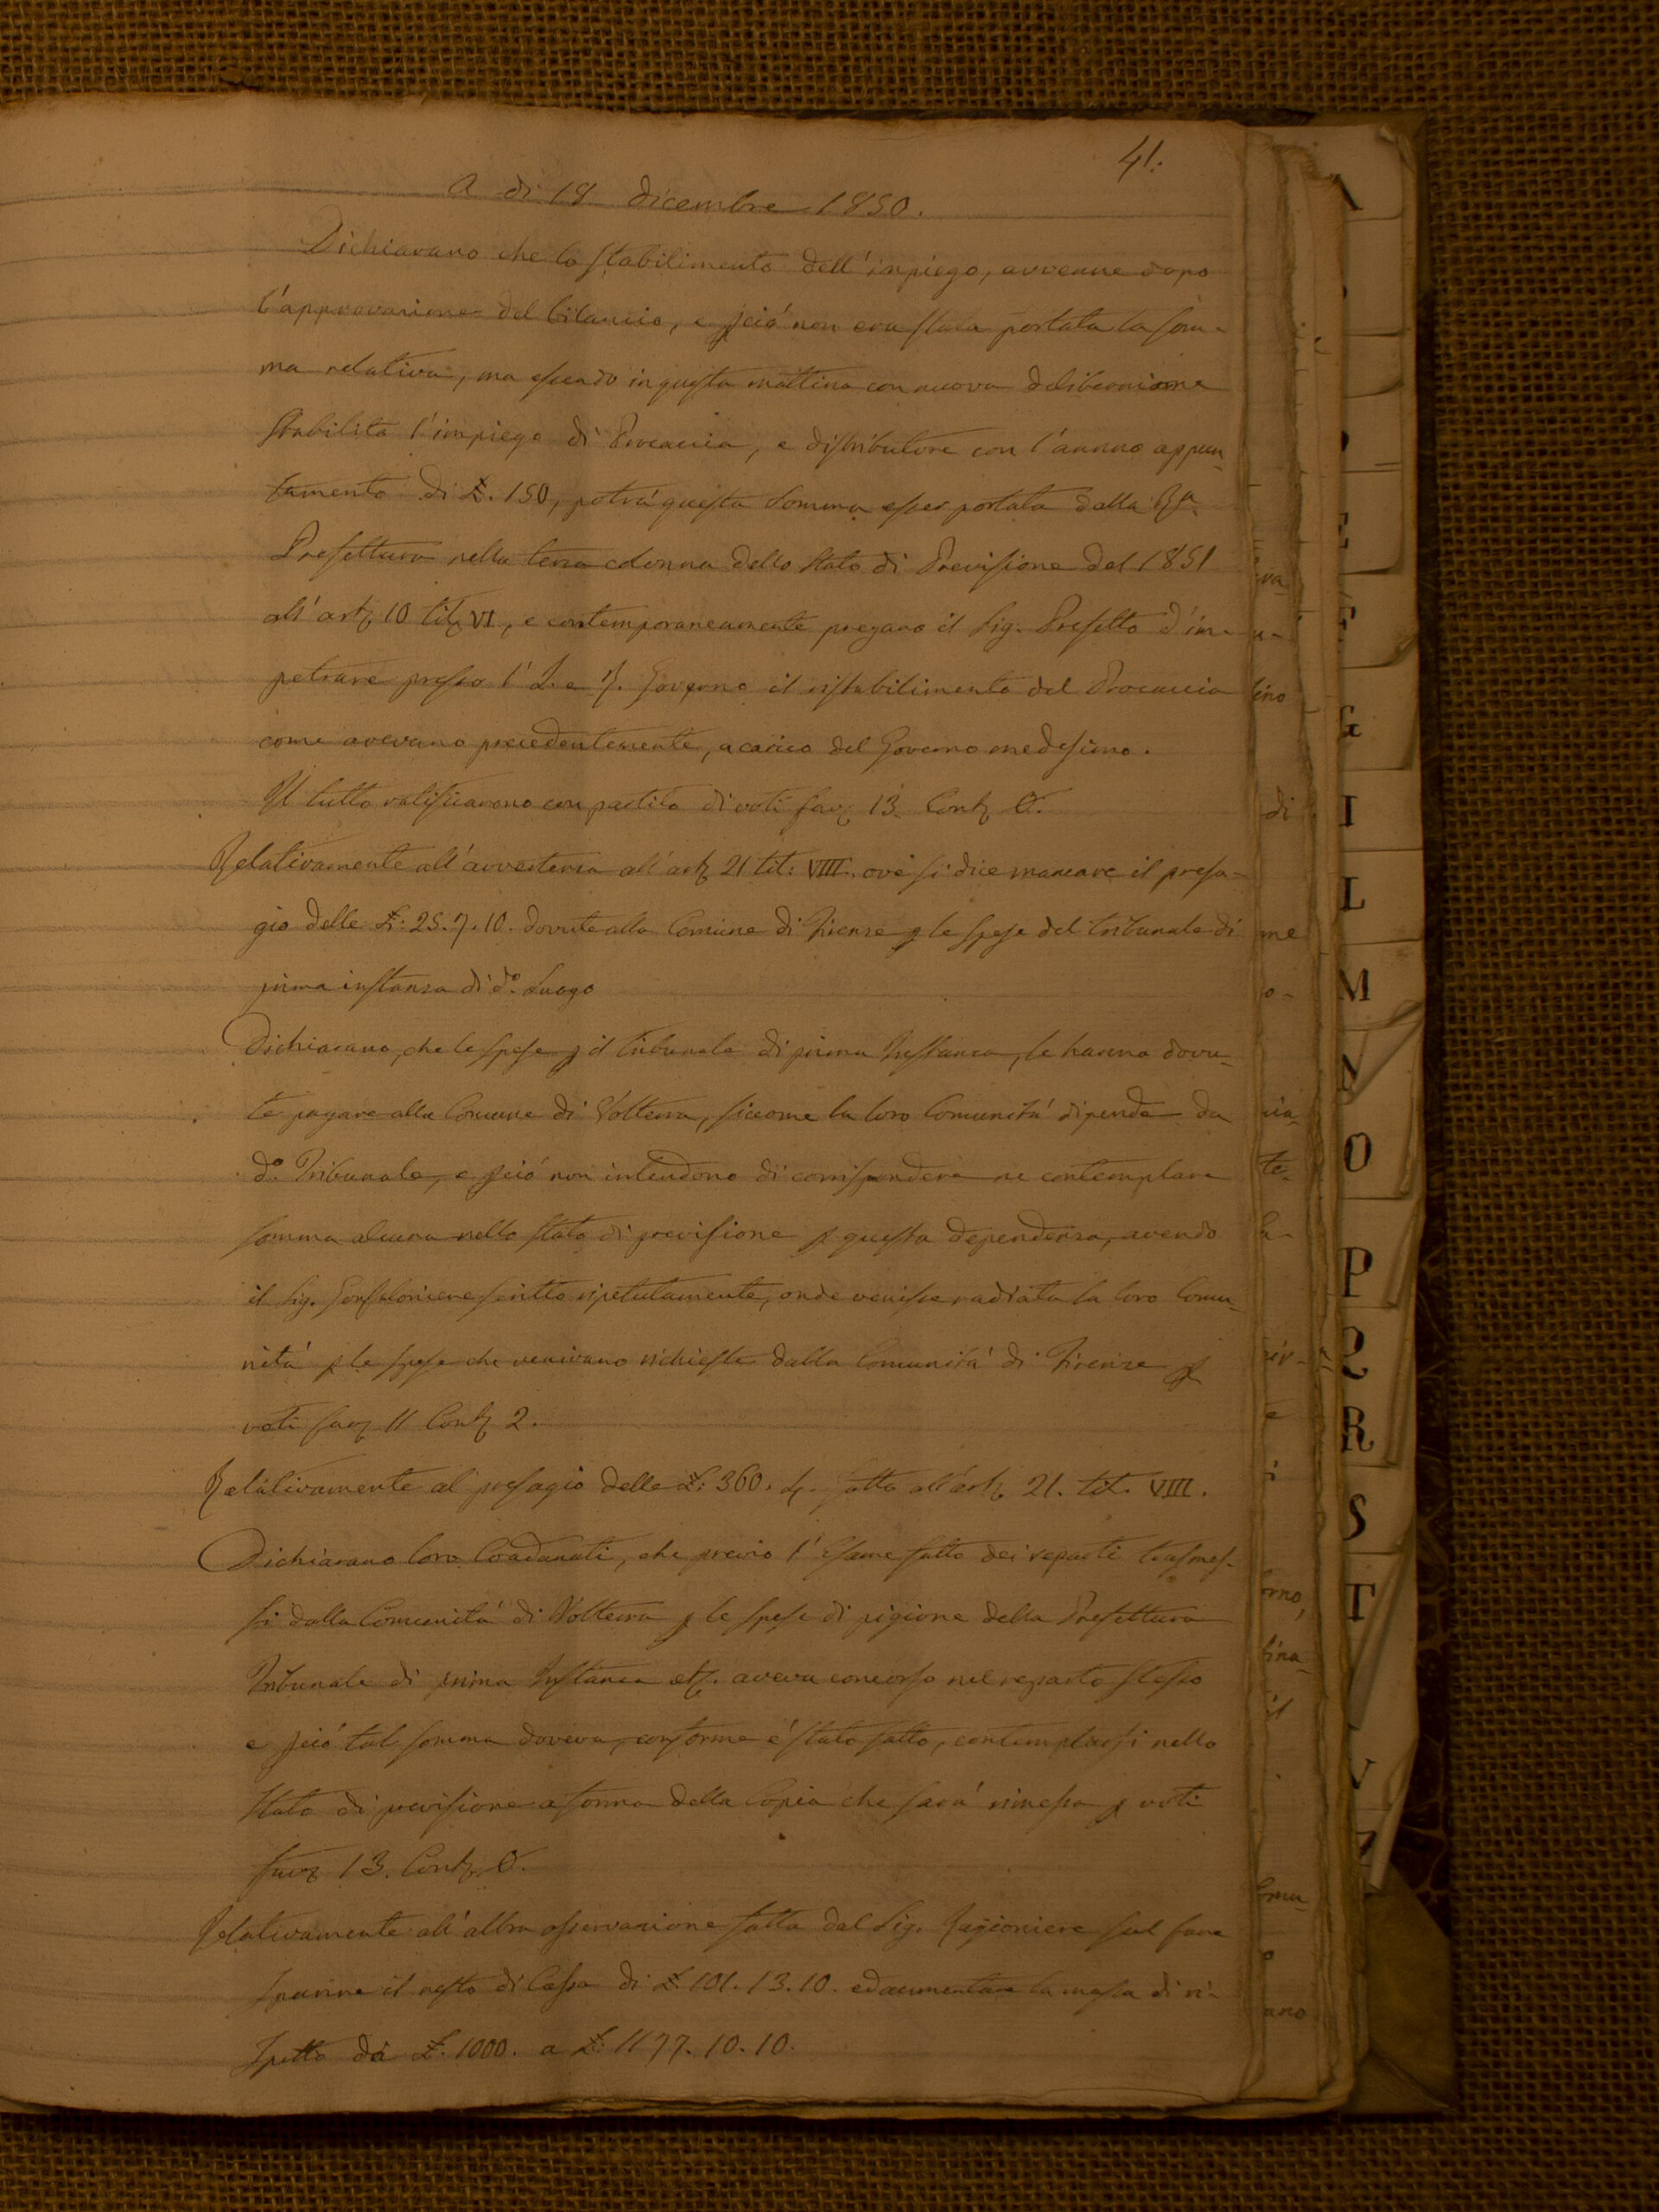 41.
A dì 18 dicembre 1850.
Dichiarano che lo stabilimento dell'impiego, avvenne dopo
l'approvazione del bilancio, e pciò non era stata portata la som-
ma relativa, ma essendo in questa mattina con nuova deliberazione
stabilito l'impiego di Procaccia, e distributore con l'annuo appun-
tamento di £. 150, potrà questa somma esser portata dalla Ra.
Prefettura nella terza colonna dello Stato di Previsione del 1851
all'art. 10 tit. VI, e contemporaneamente pregano il Sig. Prefetto d'im-
petrare presso l'I. e R. Governo il ristabilimento del Procaccia
come avevano precedentemente, a carico del Governo medesimo.
Il tutto ratificarono con partito di voti fav. 13 Cont. 0.
Relativamente all'avvertenza all'art. 21 tit: VIII. ove si dice mancare il presa-
gio delle £: 25.7.10. dovute alla Comune di Firenze p le spese del tribunale di
prima instanza di do. Luogo
Dichiarano, che le spese p il tribunale di prima Instanza, le hanno dovu-
te pagare alla Comune di Volterra, siccome la loro Comunità dipende da
do. Tribunale, e pciò non intendono di corrispondere ne contemplare
somma alcuna nello stato di previsione p questa dependenza, avendo
il Sig. Gonfaloniere scritto ripetutamente, onde venisse radiata la loro Comu-
nità p le spese che venivano richieste dalla Comunità di Firenze p
voti fav. 11 Cont. 2.
Relativamente al presagio delle £: 360. 4. fatto all'art. 21. tit. VIII.
Dichiarano loro Coadunati, che previo l'esame fatto dei reparti trasmes-
si dalla Comunità di Volterra p le spese di pigione della Prefettura
Tribunale di prima Instanza etc. aveva concorso nel reparto stesso
e pciò tal somma doveva, conforme è stato fatto, contemplarsi nello
Stato di previsione a forma della Copia che sarà rimessa p voti
fav. 13. Cont. 0.
Relativamente all'altra osservazione fatta dal Sig. Ragioniere sul fare
sparire il resto di Cassa di £ 101.13.10. ed aumentare la massa di ri-
spetto da £. 1000. a £: 1177.10.10.
A
E
F
G
I
L
M
N
O
P
Q
R
S
T
V
Z